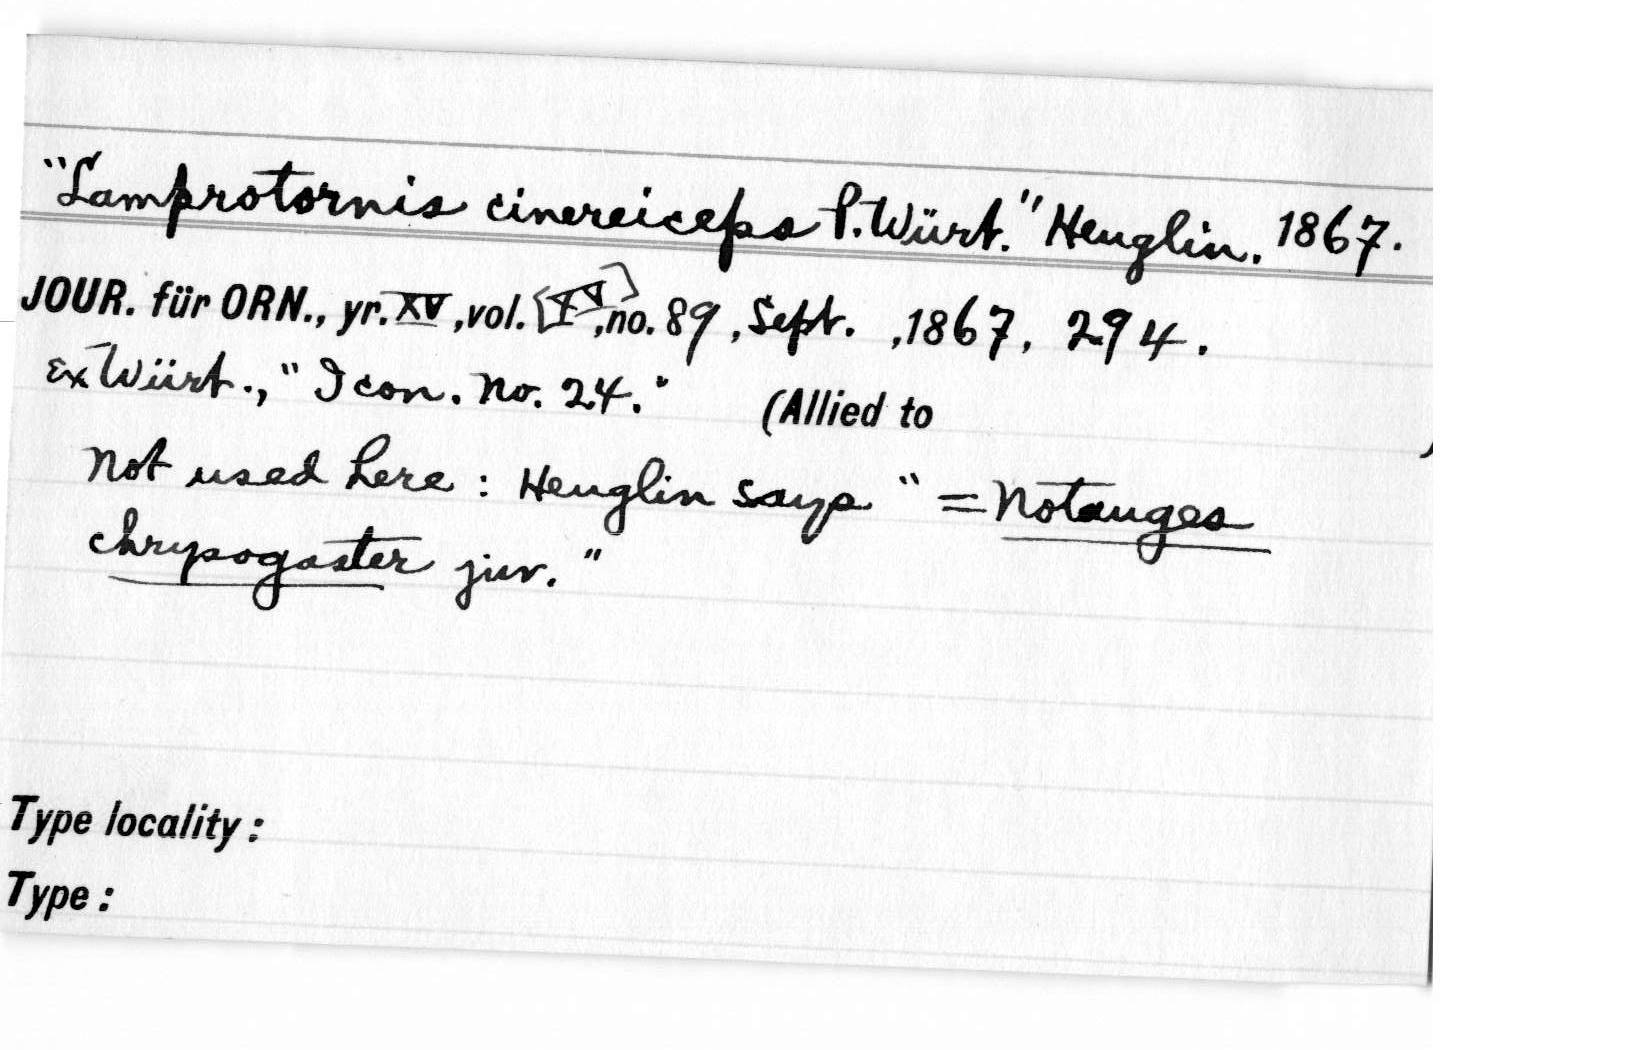 "Lamprotornis cinereiceps P. Würt." Heuglin. 1867.
JOUR. für ORN., yr. XV, vol. [XV], no. 89, Sept. , 1867, 294.
Ex Würt., "Icon. No. 24." (Allied to )
Not used here: Heuglin says "= Notauges
chrysogaster juv."
Type locality:
Type: